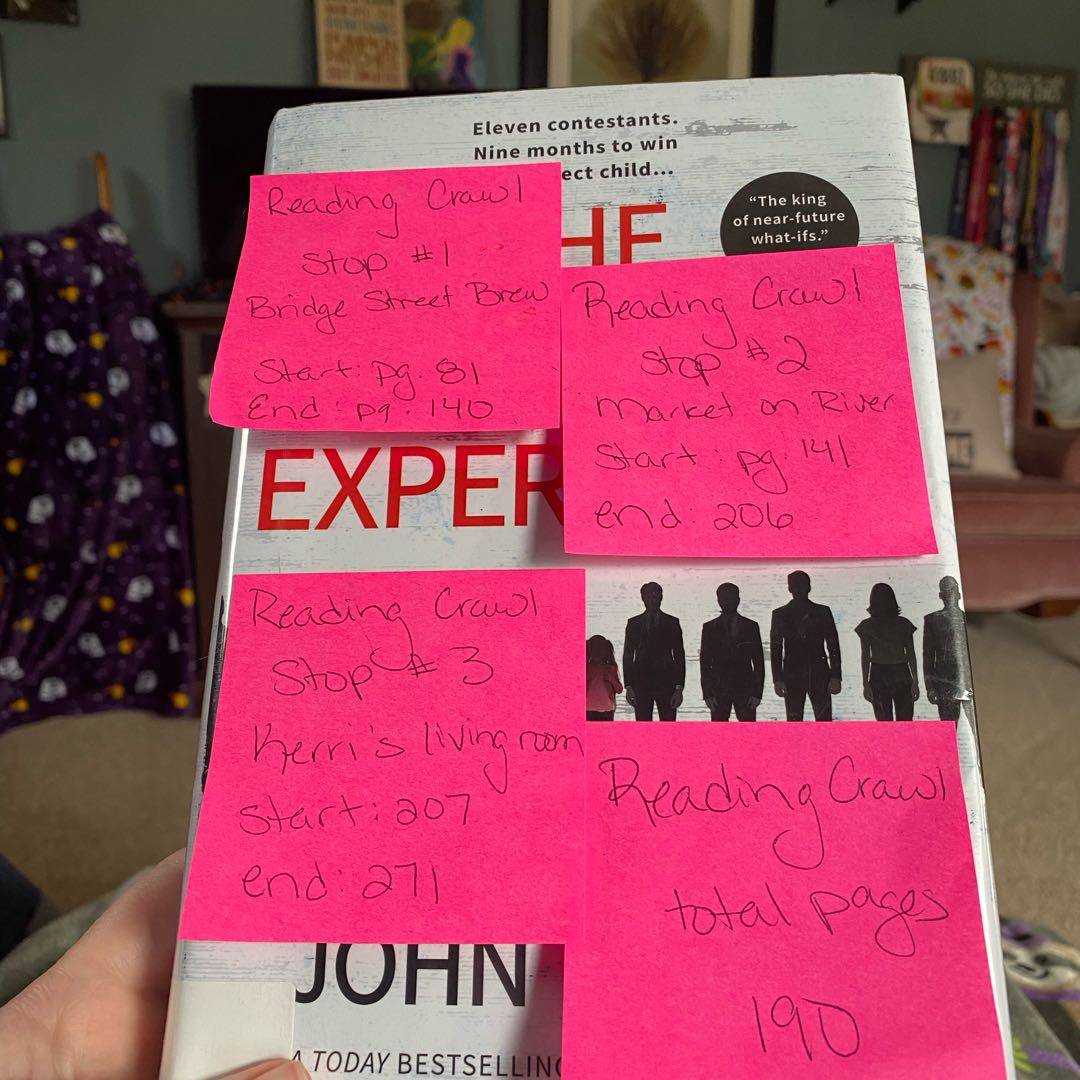 Eleven contestants.
Nine months to win
ect child...
HE
"The king
of near-future
what-ifs."
Reading Crawl
Stop #1
Bridge Street Brew
Start: pg. 81
End: pg. 140
Reading Crawl
Stop #2
Market on River
Start: pg. 141
end: 206
EXPER
Reading Crawl
Stop # 3
Kerri's living room
Start: 207
end: 271
Reading Crawl
total pages
190
JOHN
A TODAY BESTSELLING